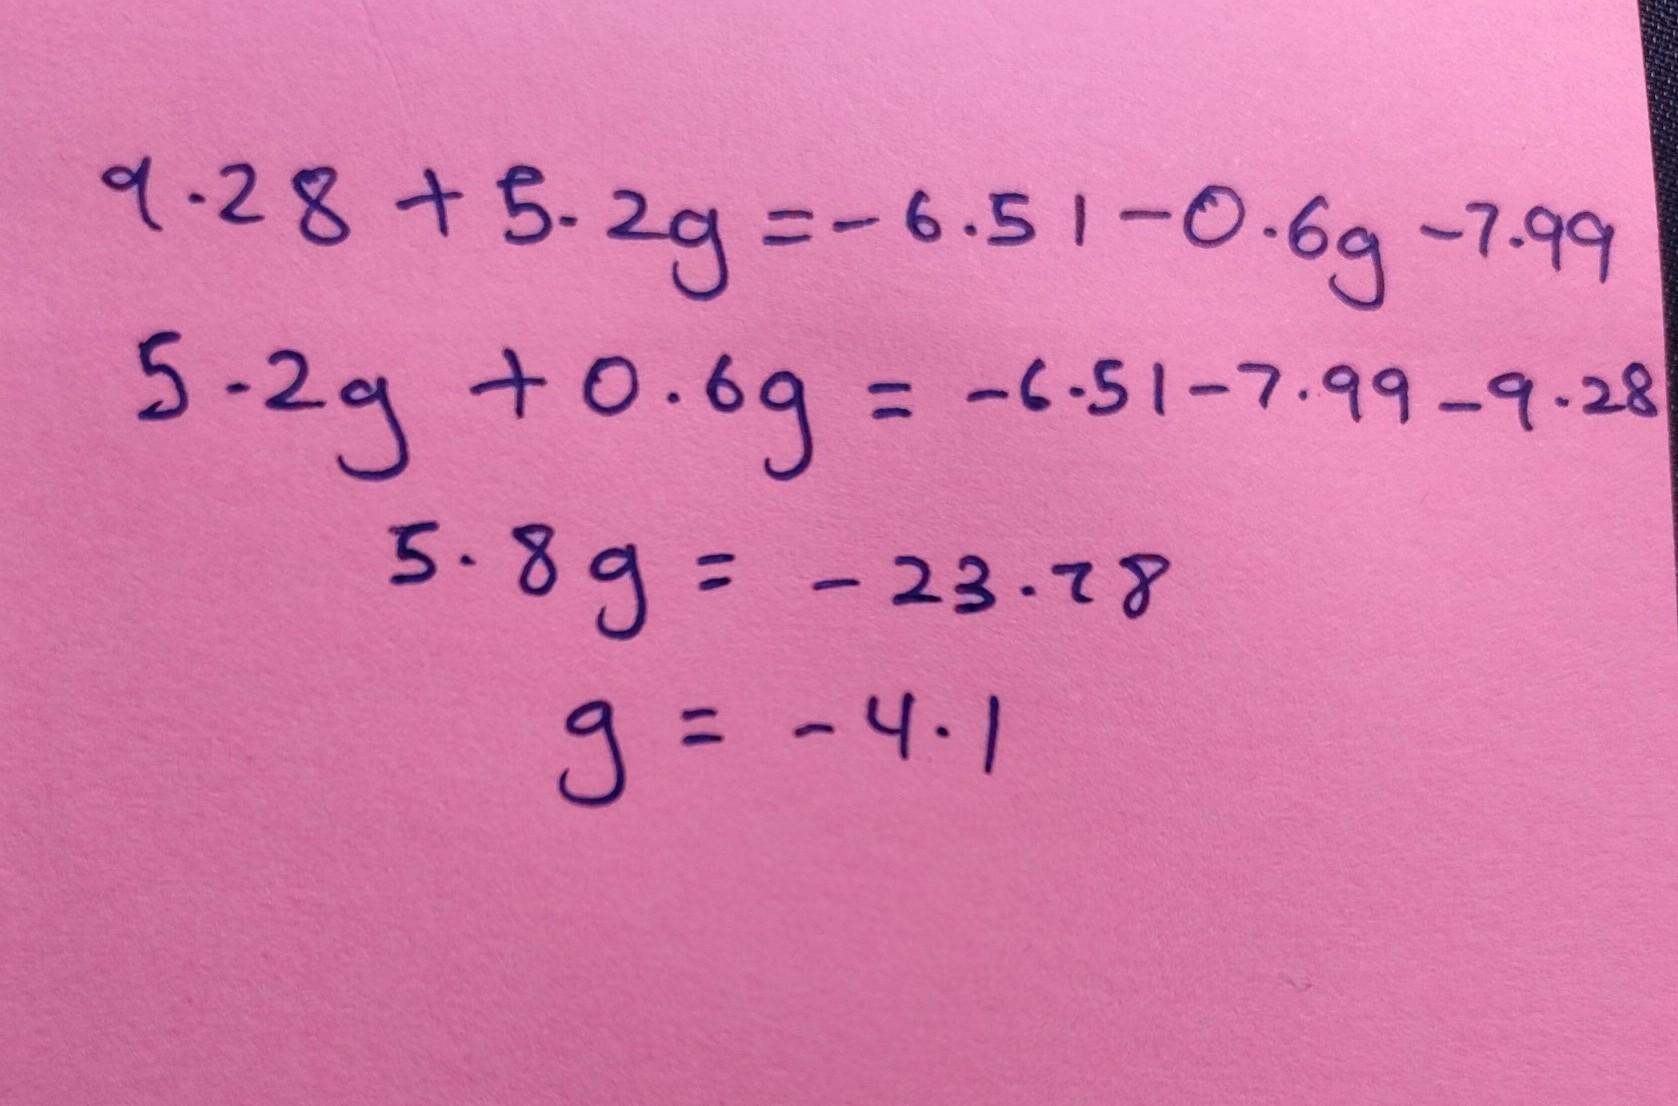 9.28 + 5.2g = -6.51 - 0.6g - 7.99
5.2g + 0.6g = -6.51 - 7.99 - 9.28
5.8g = -23.78
g = -4.1